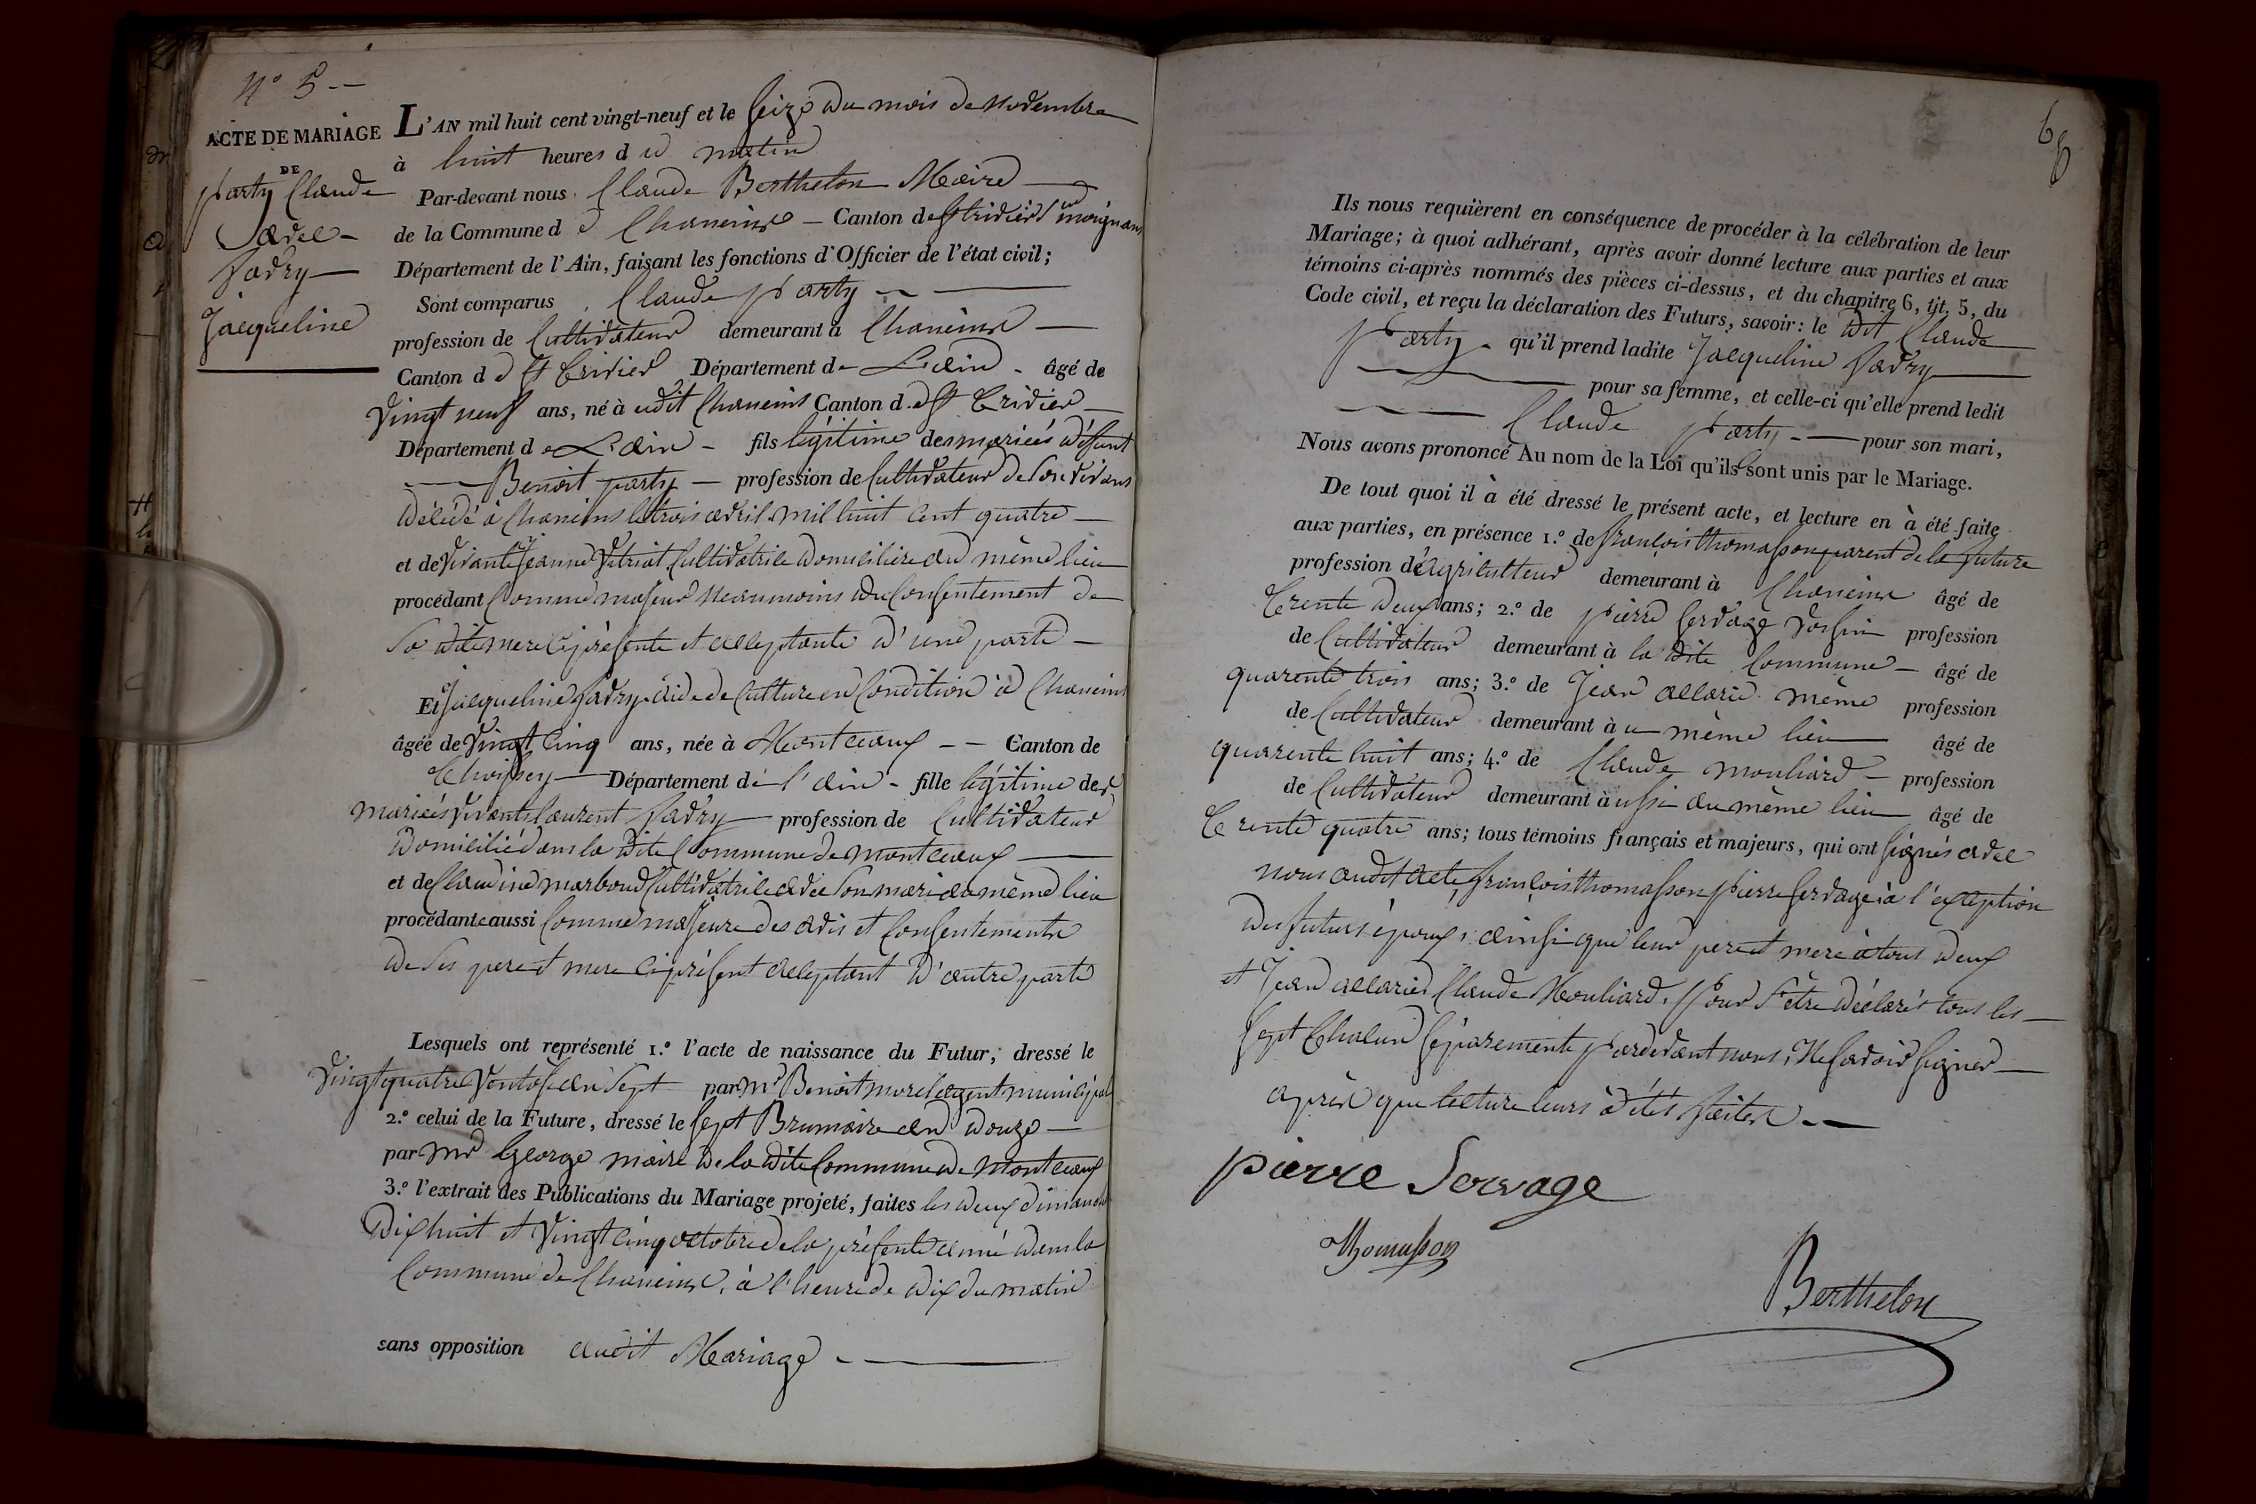 N° 5 --
ACTE DE MARIAGE
DE
party Claude
avec -
favry -
Jacqueline
L'AN mil huit cent vingt-neuf et le seize du mois de novembre
à huit heures d u matin
Par-devant nous Claude Berthelon Maire
de la Commune d e Chaneins - Canton de St tridier s/ moignans
Département de l'Ain, faisant les fonctions d'Officier de l'état civil;
Sont comparus Claude party
profession de Cultivateur demeurant à Chaneins
Canton d e St Tridier Département de L'ain - âgé de
vingt neuf ans, né à udit Chaneins Canton d e St Tridier
Département de L'ain - fils légitime des mariés défunt
Benoit party - profession de Cultivateur de son vivans
décédé à Chaneins le trois avril mil huit cent quatre
et de vivante Jeanne Vitriat Cultivatrice domiciliere au même lieu
procédant Comme majeur neanmoins du Consentement de
sa dite mere ci présente et acceptante d'une parte
Et Jacqueline favry aide de culture en Condition à Chaneins
âgée de vingt cinq ans, née à Montceaux -- Canton de
Thoissey Département de l'ain - fille légitime des
mariés vivants laurent favry profession de Cultivateur
domicilié dans la dite Commune de montceaux
et de Claudine marboud Cultivatrice avec son mari au même lieu
procédante aussi Comme majeure des avis et Consentements
de ses pere et mere ci présent acceptant d'autre parte
Lesquels ont représenté 1.° l'acte de naissance du Futur, dressé le
vingt quatre ventose an sept par Mr Benoit morel agent municipal
2.° celui de la Future, dressé le sept Brumaire an douze
par Mr George maire de la dite Commune de montceaux
3.° l'extrait des Publications du Mariage projeté, faites les deux dimanche
dix huit et vingt cinq octobre de la présente anné dans la
Commune de Chaneins, à l'heure de dix du matin
sans opposition audit Mariage
Ils nous requièrent en conséquence de procéder à la célébration de leur
Mariage; à quoi adhérant, après avoir donné lecture aux parties et aux
témoins ci-après nommés des pièces ci-dessus, et du chapitre 6, tit. 5, du
Code civil, et reçu la déclaration des Futurs, savoir: le dit Claude
Party - qu'il prend ladite Jacqueline favry
pour sa femme, et celle-ci qu'elle prend ledit
Claude party - pour son mari,
Nous avons prononcé Au nom de la Loi qu'ils sont unis par le Mariage.
De tout quoi il à été dressé le présent acte, et lecture en à été faite
aux parties, en présence 1.° de francois thomasson parent de la future
profession d'agriculteur demeurant à Chaneins âgé de
Trente deux ans; 2.° de pierre servage voisin profession
de Cultivateur demeurant à la dite Commune - âgé de
quarente trois ans; 3.° de Jean allarie même profession
de Cultivateur demeurant à u même lieu âgé de
quarente huit ans; 4.° de Claude mouliard - profession
de Cultivateur demeurant à ussi au même lieu âgé de
Trente quatre ans; tous témoins français et majeurs, qui ont signés avec
nous audit acte, françois thomasson pierre servage à l'exception
des futurs époux, ainsi que leur pere et mere à tous deux
et Jean allarie Claude Mouliard, pour s'être déclarés tous les
sept Chacun séparemente pardevant nous, Ne savoir signer
après que lecture leurs à étés faites --
pierre Servage
Thomasson
Berthelon